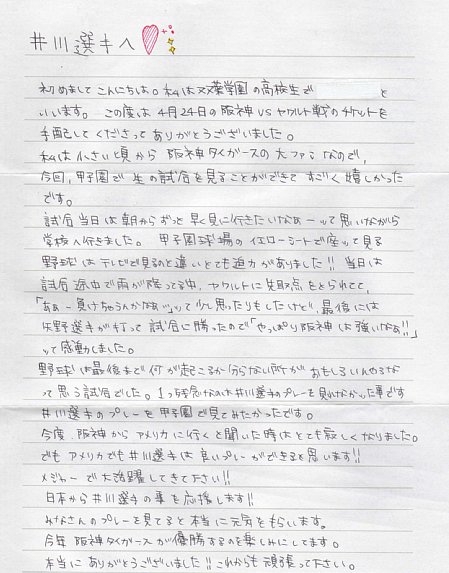 井川選手へ
初めまして こんにちは。私は双葉学園の高校生で と
いいます。 この度は 4月24日の阪神VSヤクルト戦のチケットを
手配して くださって ありがとうございました。
私は小さい頃から 阪神タイガースの大ファンなので、
今回、甲子園で 生の試合を見ることができて すごく嬉しかった
です。
試合当日は朝からずっと 早く見に行きたいなぁーって思いながら
学校へ行きました。 甲子園球場の イエローシートで座って見る
野球は テレビで見るのと違いとても迫力がありました!! 当日は
試合途中で雨が降ってる中、ヤクルトに先取点をとられてて、
「あぁー負けちゃうんかなぁ〜」って少し思ったりもしたけど、最後には
矢野選手が打って 試合に勝ったので「やっぱり阪神は強いなぁ!!」
って感動しました。
野球は最後まで何が起こるか分らない所が おもしろいんやなぁ
って思う試合でした。1つ残念なのは井川選手のプレーを見れなかった事です
井川選手の プレーを 甲子園で見てみたかったです。
今度 阪神から アメリカに行くと聞いた時はとても寂しくなりました。
でも アメリカでも井川選手は 良いプレーができると思います!!
メジャーで大活躍してきて下さい!!
日本から井川選手の事を応援します!!
みなさんのプレーを見てると本当に元気をもらいます。
今年 阪神タイガースが優勝するのを楽しみにしてます。
本当に ありがとうございました!! これからも 頑張って下さい。